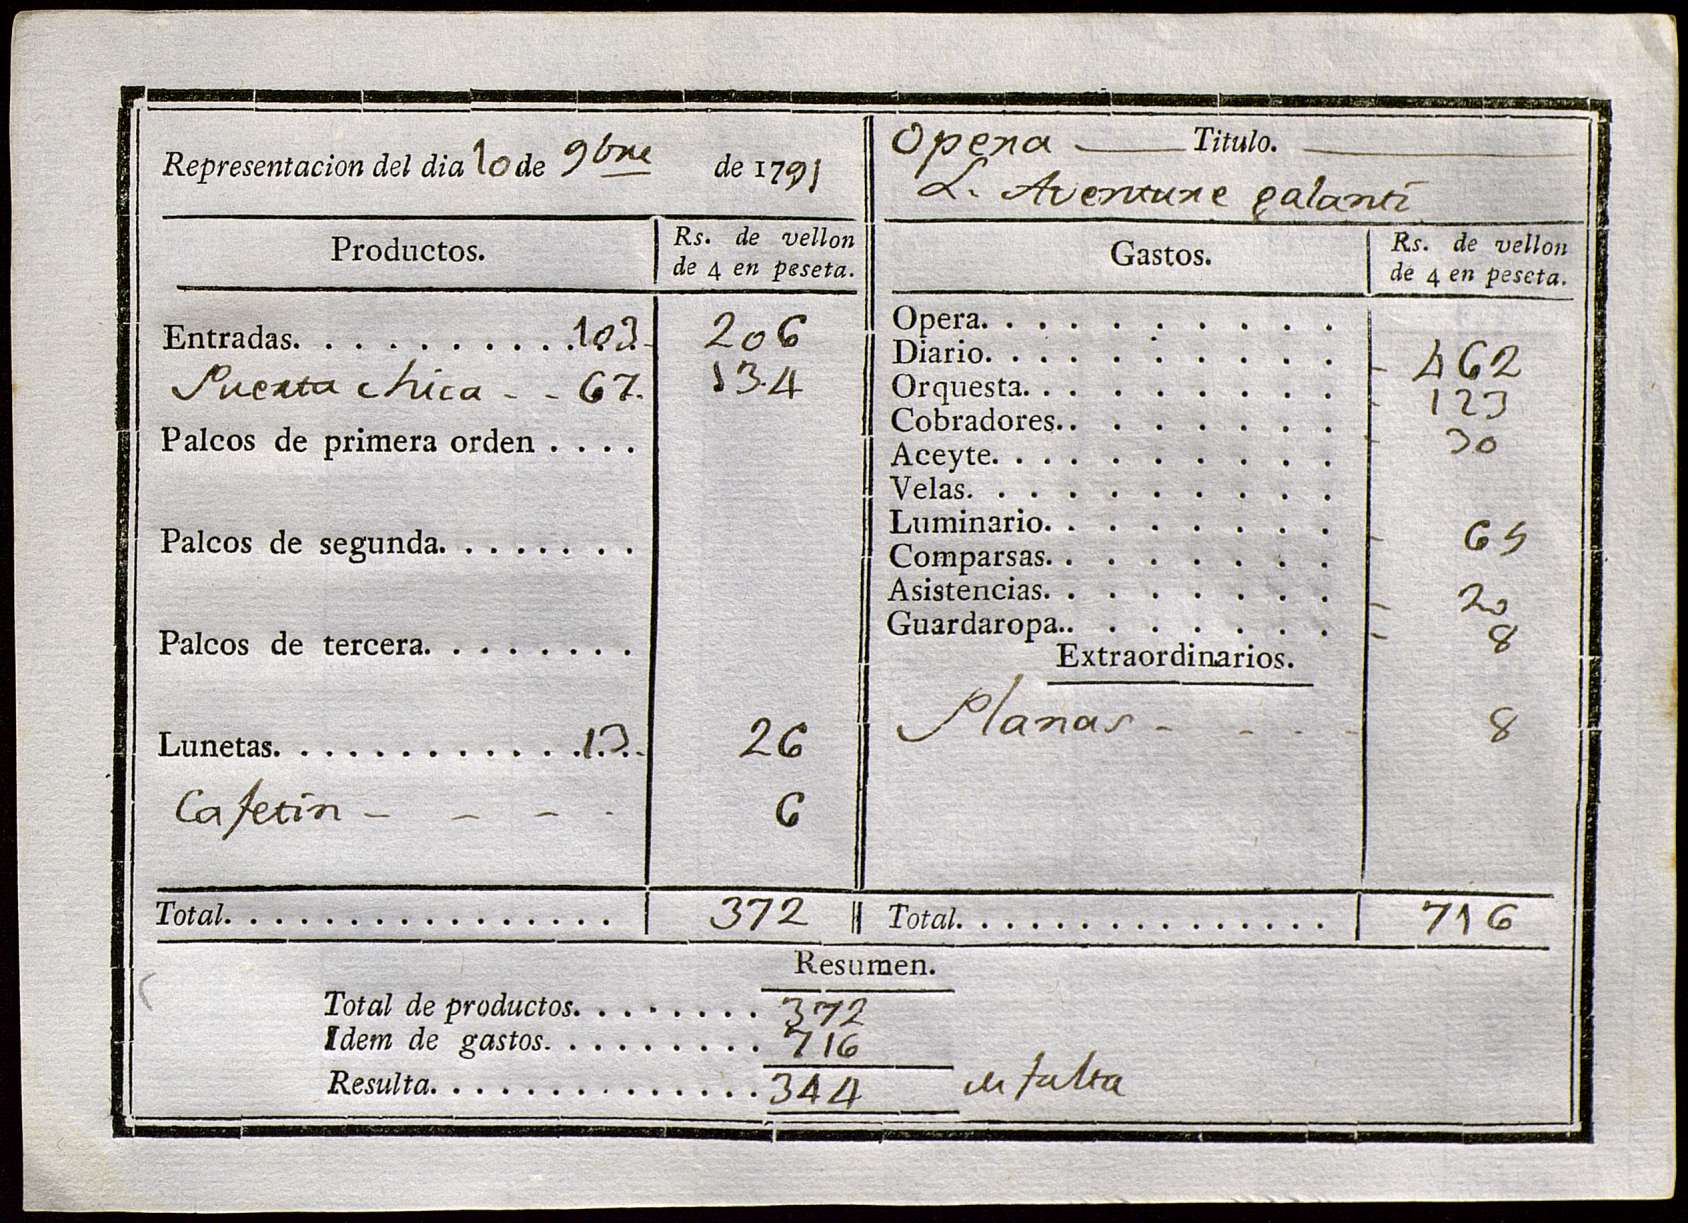 Representacion del dia 10 de 9bre de 1791
Opera Titulo.
L. Aventure galanti
Productos.
Rs. de vellon
de 4 en peseta.
Entradas. 103 206
Puerta chica 67. 134
Palcos de primera orden
Palcos de segunda.
Palcos de tercera.
Lunetas. 13. 26
Cafetin 6
Total. 372
Gastos.
Rs. de vellon
de 4 en peseta.
Opera.
Diario. 462
Orquesta. 123
Cobradores. 30
Aceyte.
Velas.
Luminario. 65
Comparsas.
Asistencias. 20
Guardaropa. 8
Extraordinarios.
Planas 8
Total. 716
Resumen.
Total de productos. 372
Idem de gastos. 716
Resulta. 344 en falta